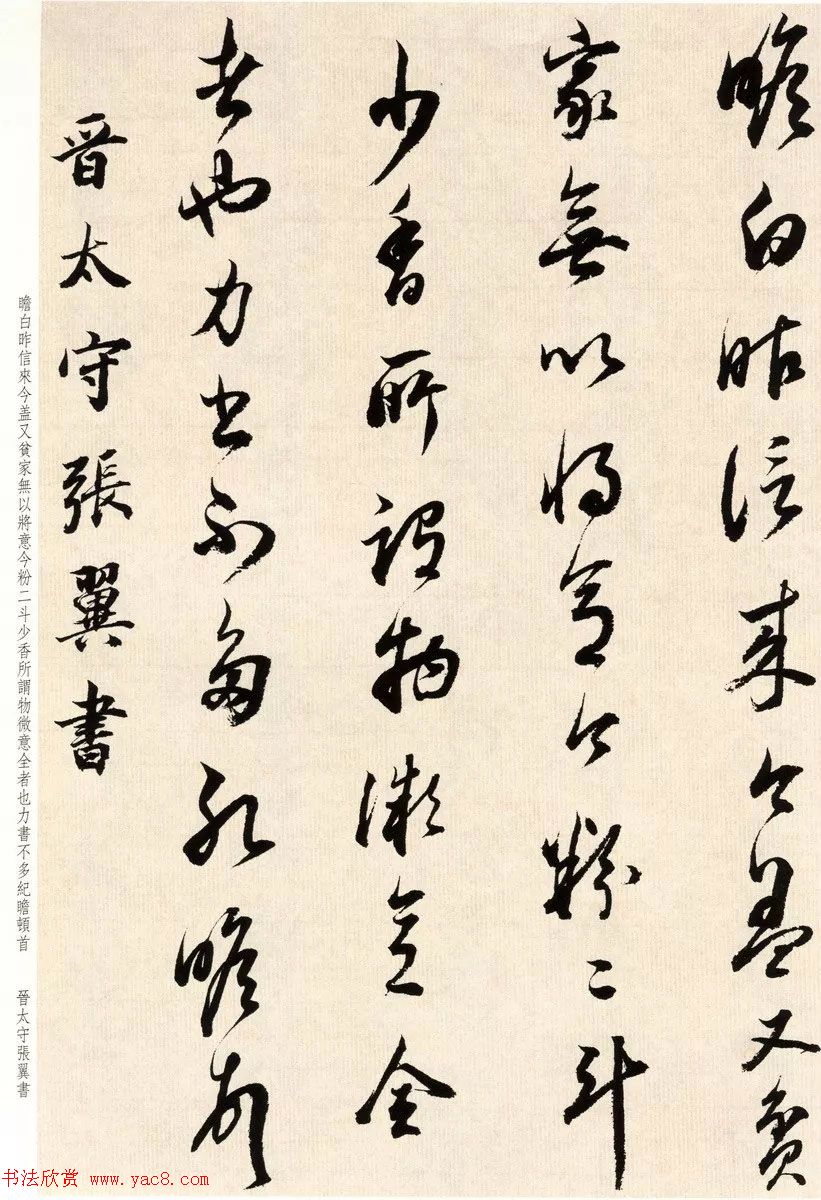 瞻白昨信来今盖又貧
家無以將意今粉二斗
少香所謂物微意全
者也力書不多紀瞻頓首
晉太守張翼書
瞻白昨信來今盖又貧家無以將意今粉二斗少香所謂物微意全者也力書不多紀瞻頓首　晉太守張翼書
书法欣赏 www.yac8.com